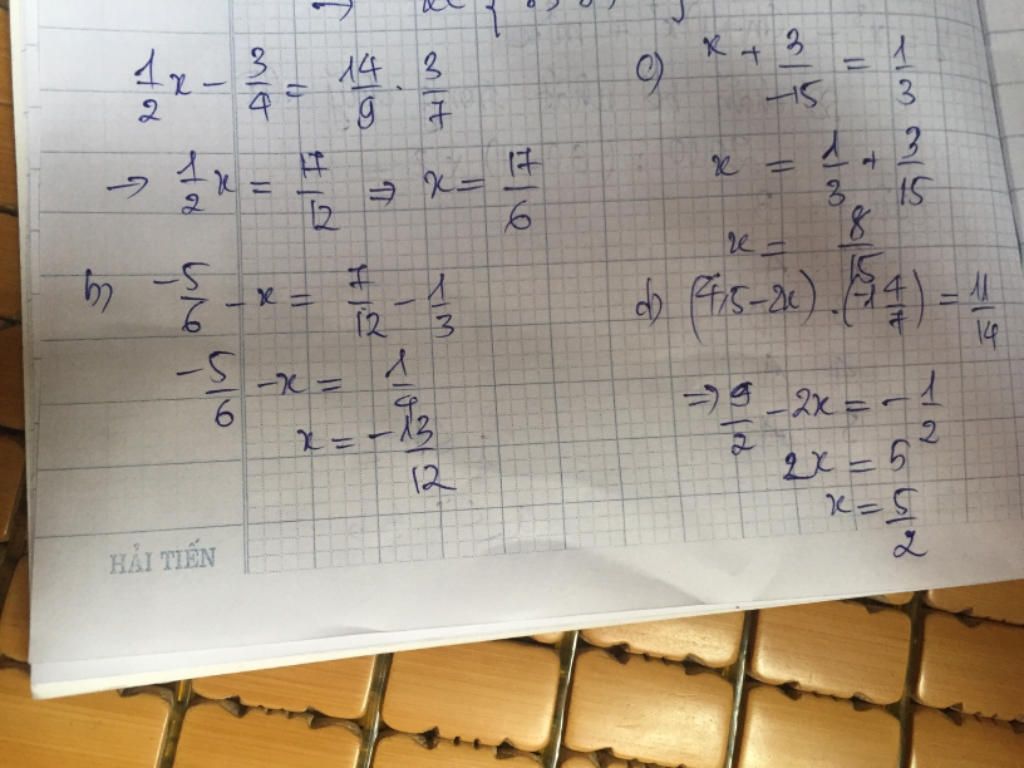 1/2 x - 3/4 = 14/9 . 3/7
→ 1/2 x = 17/12 ⇒ x = 17/6
b) -5/6 - x = 7/12 - 1/3
-5/6 - x = 1/4
x = -13/12
c) x + 3/-15 = 1/3
x = 1/3 + 3/15
x = 8/15
d) (4,5 - 2x) . (-1 4/7) = 11/14
⇒ 9/2 - 2x = - 1/2
2x = 5
x = 5/2
HẢI TIẾN